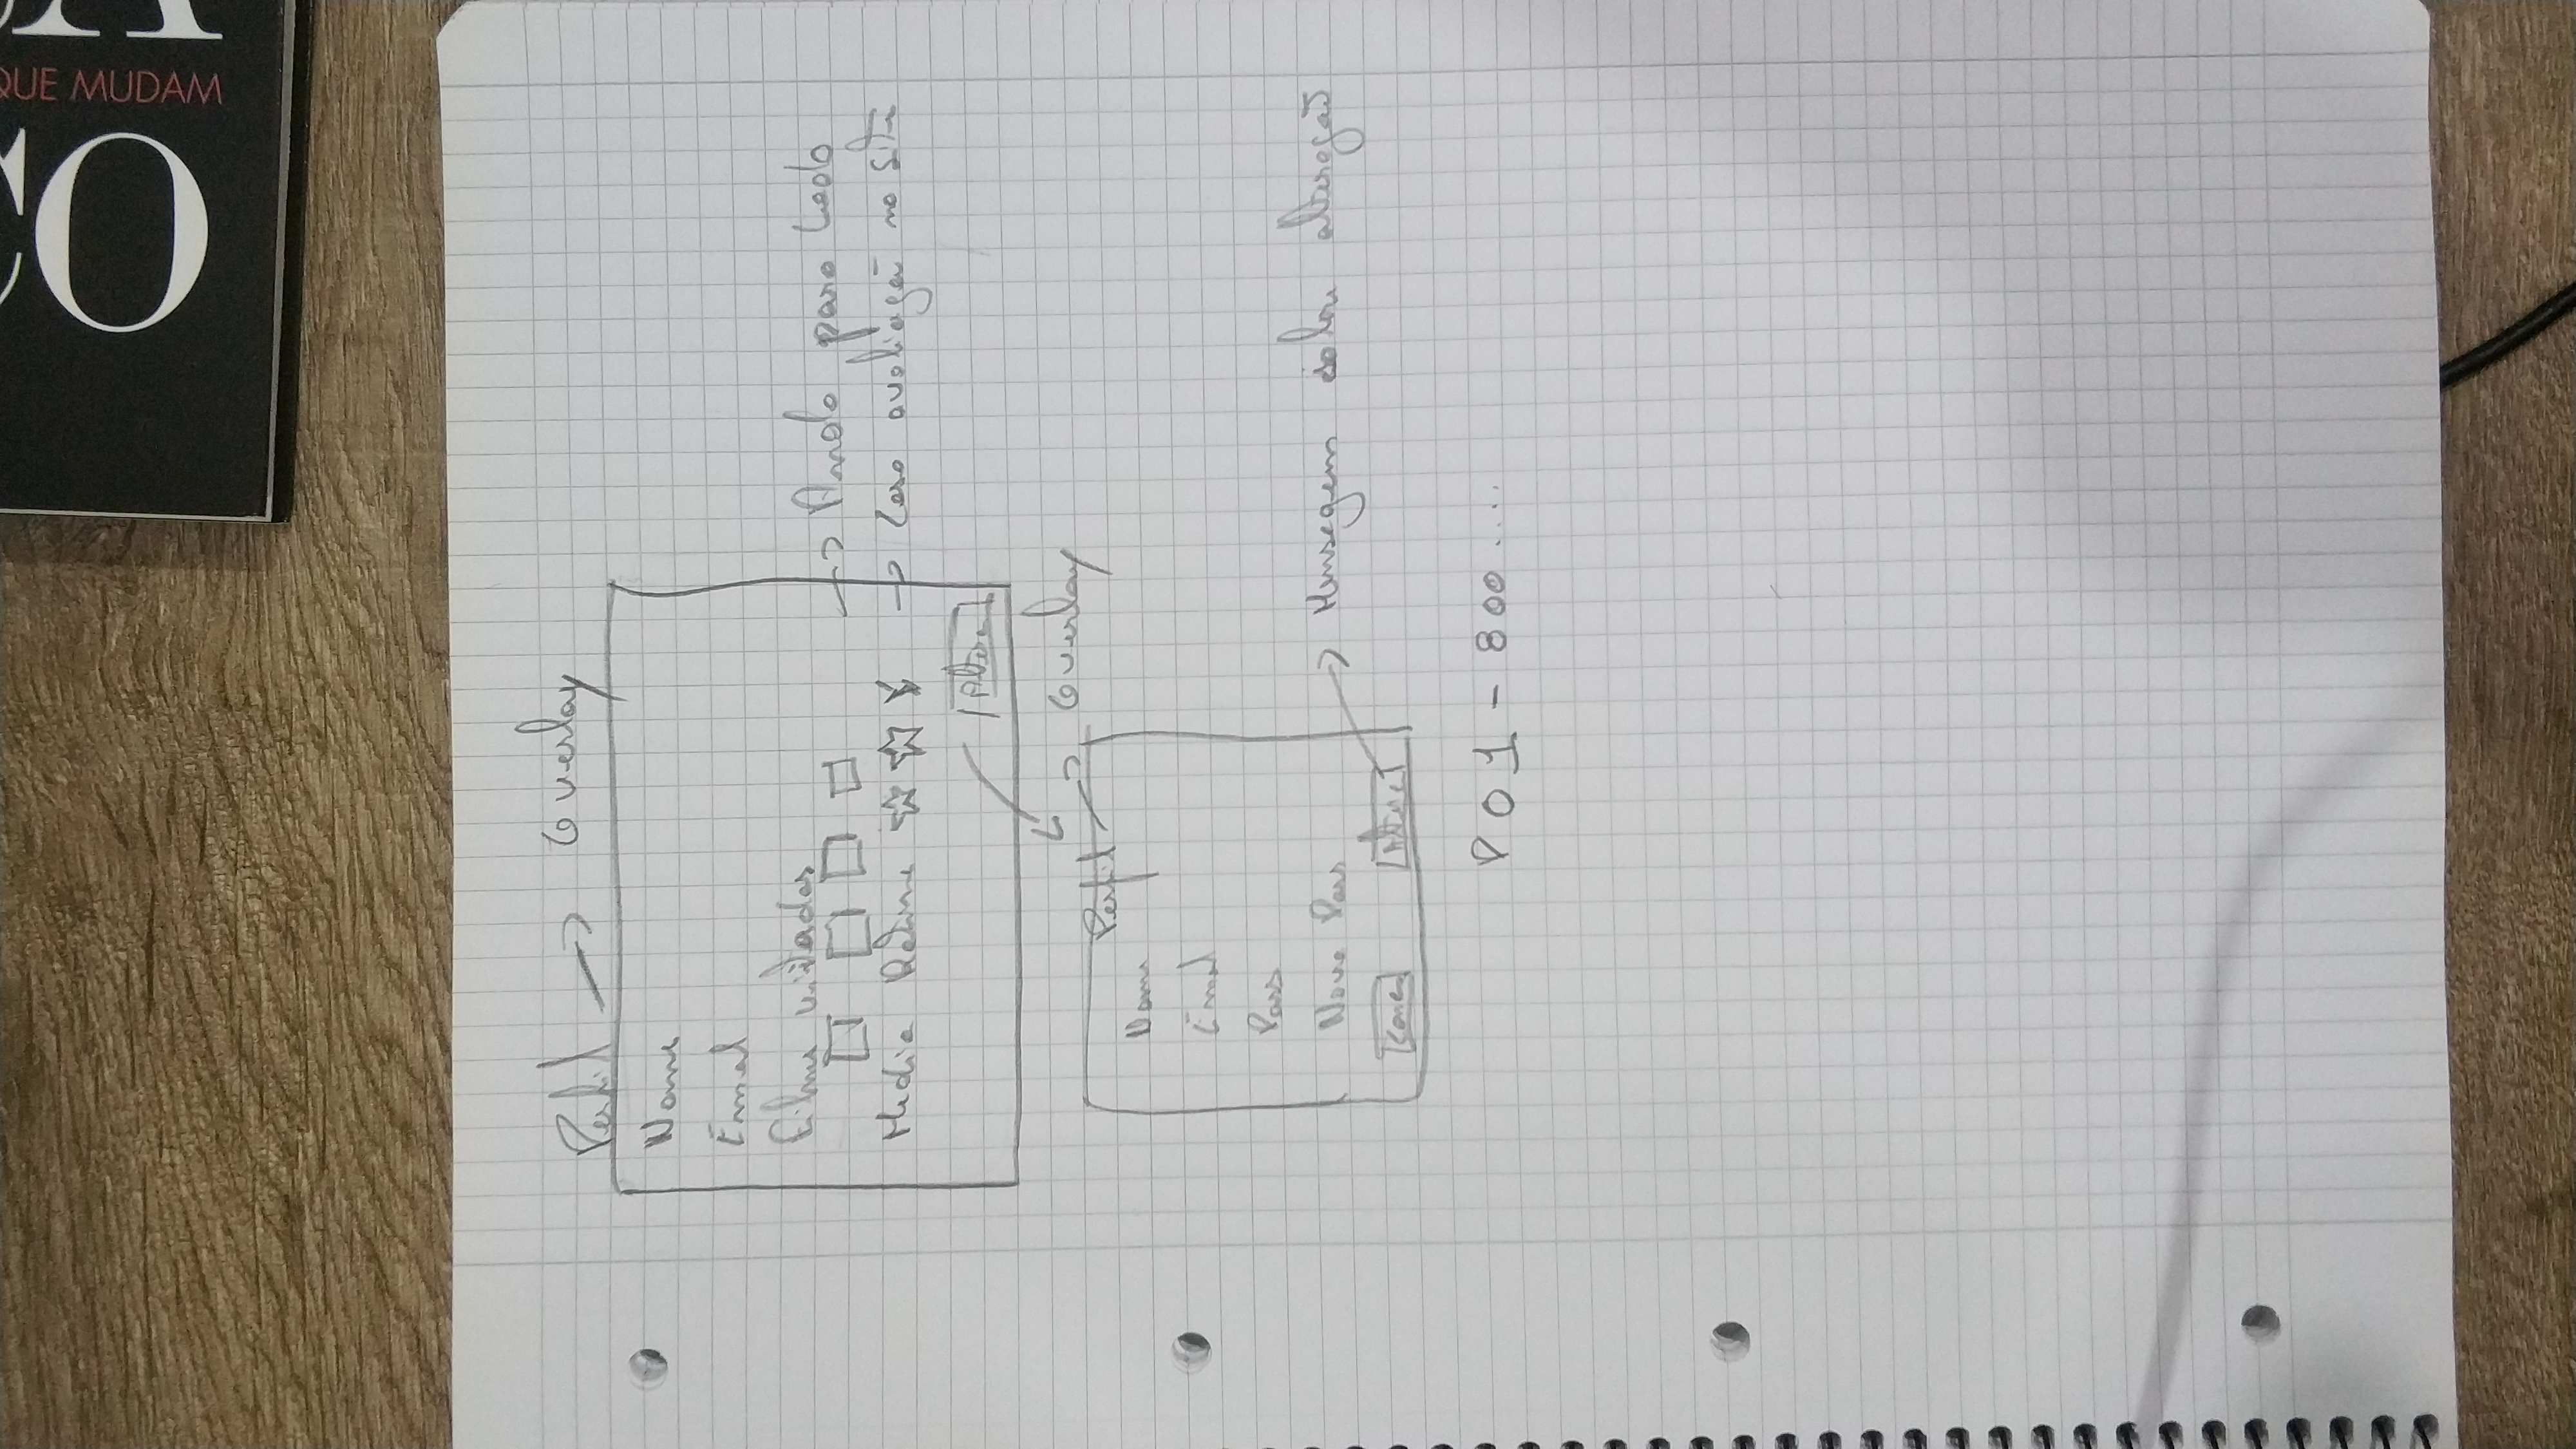 CO
QUE MUDAM
Perfil → Overlay
Nome
Email
Filmes visitados
→ Anda para lado
Media Rating ☆ ☆ → Caso avaliação no site
Altera
Perfil → Overlay
Nome
Email
Pass
Nova Pass
→ Mensagem sobre alteração
Altera
P01-800....